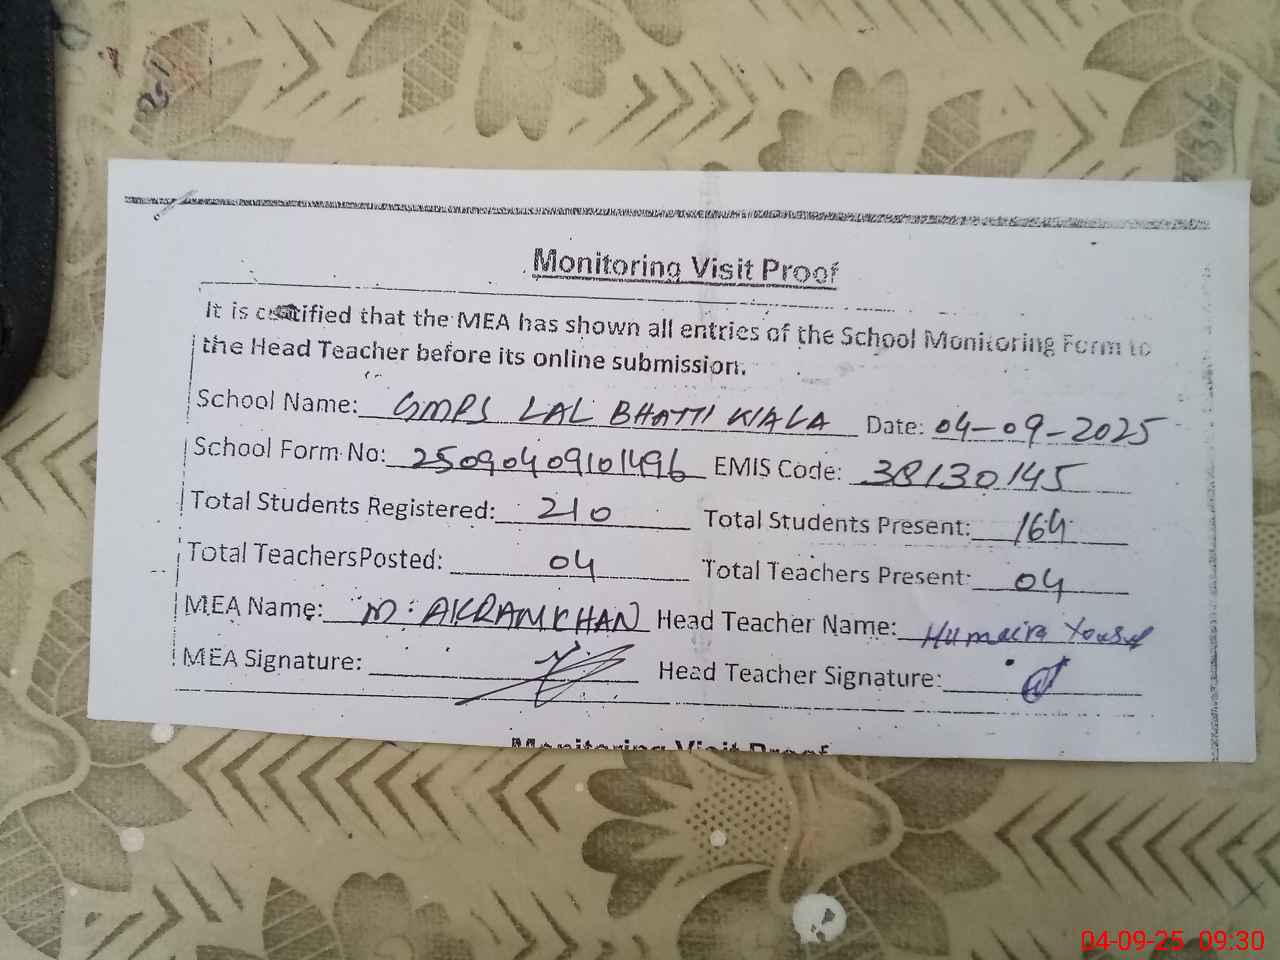 Monitoring Visit Proof
It is certified that the MEA has shown all entries of the School Monitoring Form to
the Head Teacher before its online submission.
School Name: GMPS LAL BHATTI WALA Date: 04-09-2025
School Form No: 25090409101496 EMIS Code: 38130145
Total Students Registered: 210 Total Students Present: 164
Total TeachersPosted: 04 Total Teachers Present: 04
MEA Name: M. AKRAM KHAN Head Teacher Name: Humaira Yousuf
MEA Signature: Head Teacher Signature:
Monitoring Visit Proof
04-09-25 09:30